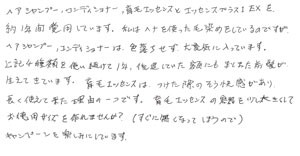 ヘアシャンプー,コンディショナー,育毛エッセンスとエッセンスプラスI EXを
約1年間愛用しています。私はヘナを使った毛染めをしているですが、
ヘアシャンプー,コンディショナーは、色落ちせず大変気に入っています。
上記4種類を使い続けて1年、後退していた額にもまた新たな髪が
生えてきています。育毛エッセンスは、つけた際のそう快感があり、
長く使えて来た理由の一つです。育毛エッセンスの容器をもう少し大きくして
お徳用サイズを作れませんか?(すぐに無くなってしまうので)
キャンペーンを楽しみにしています。